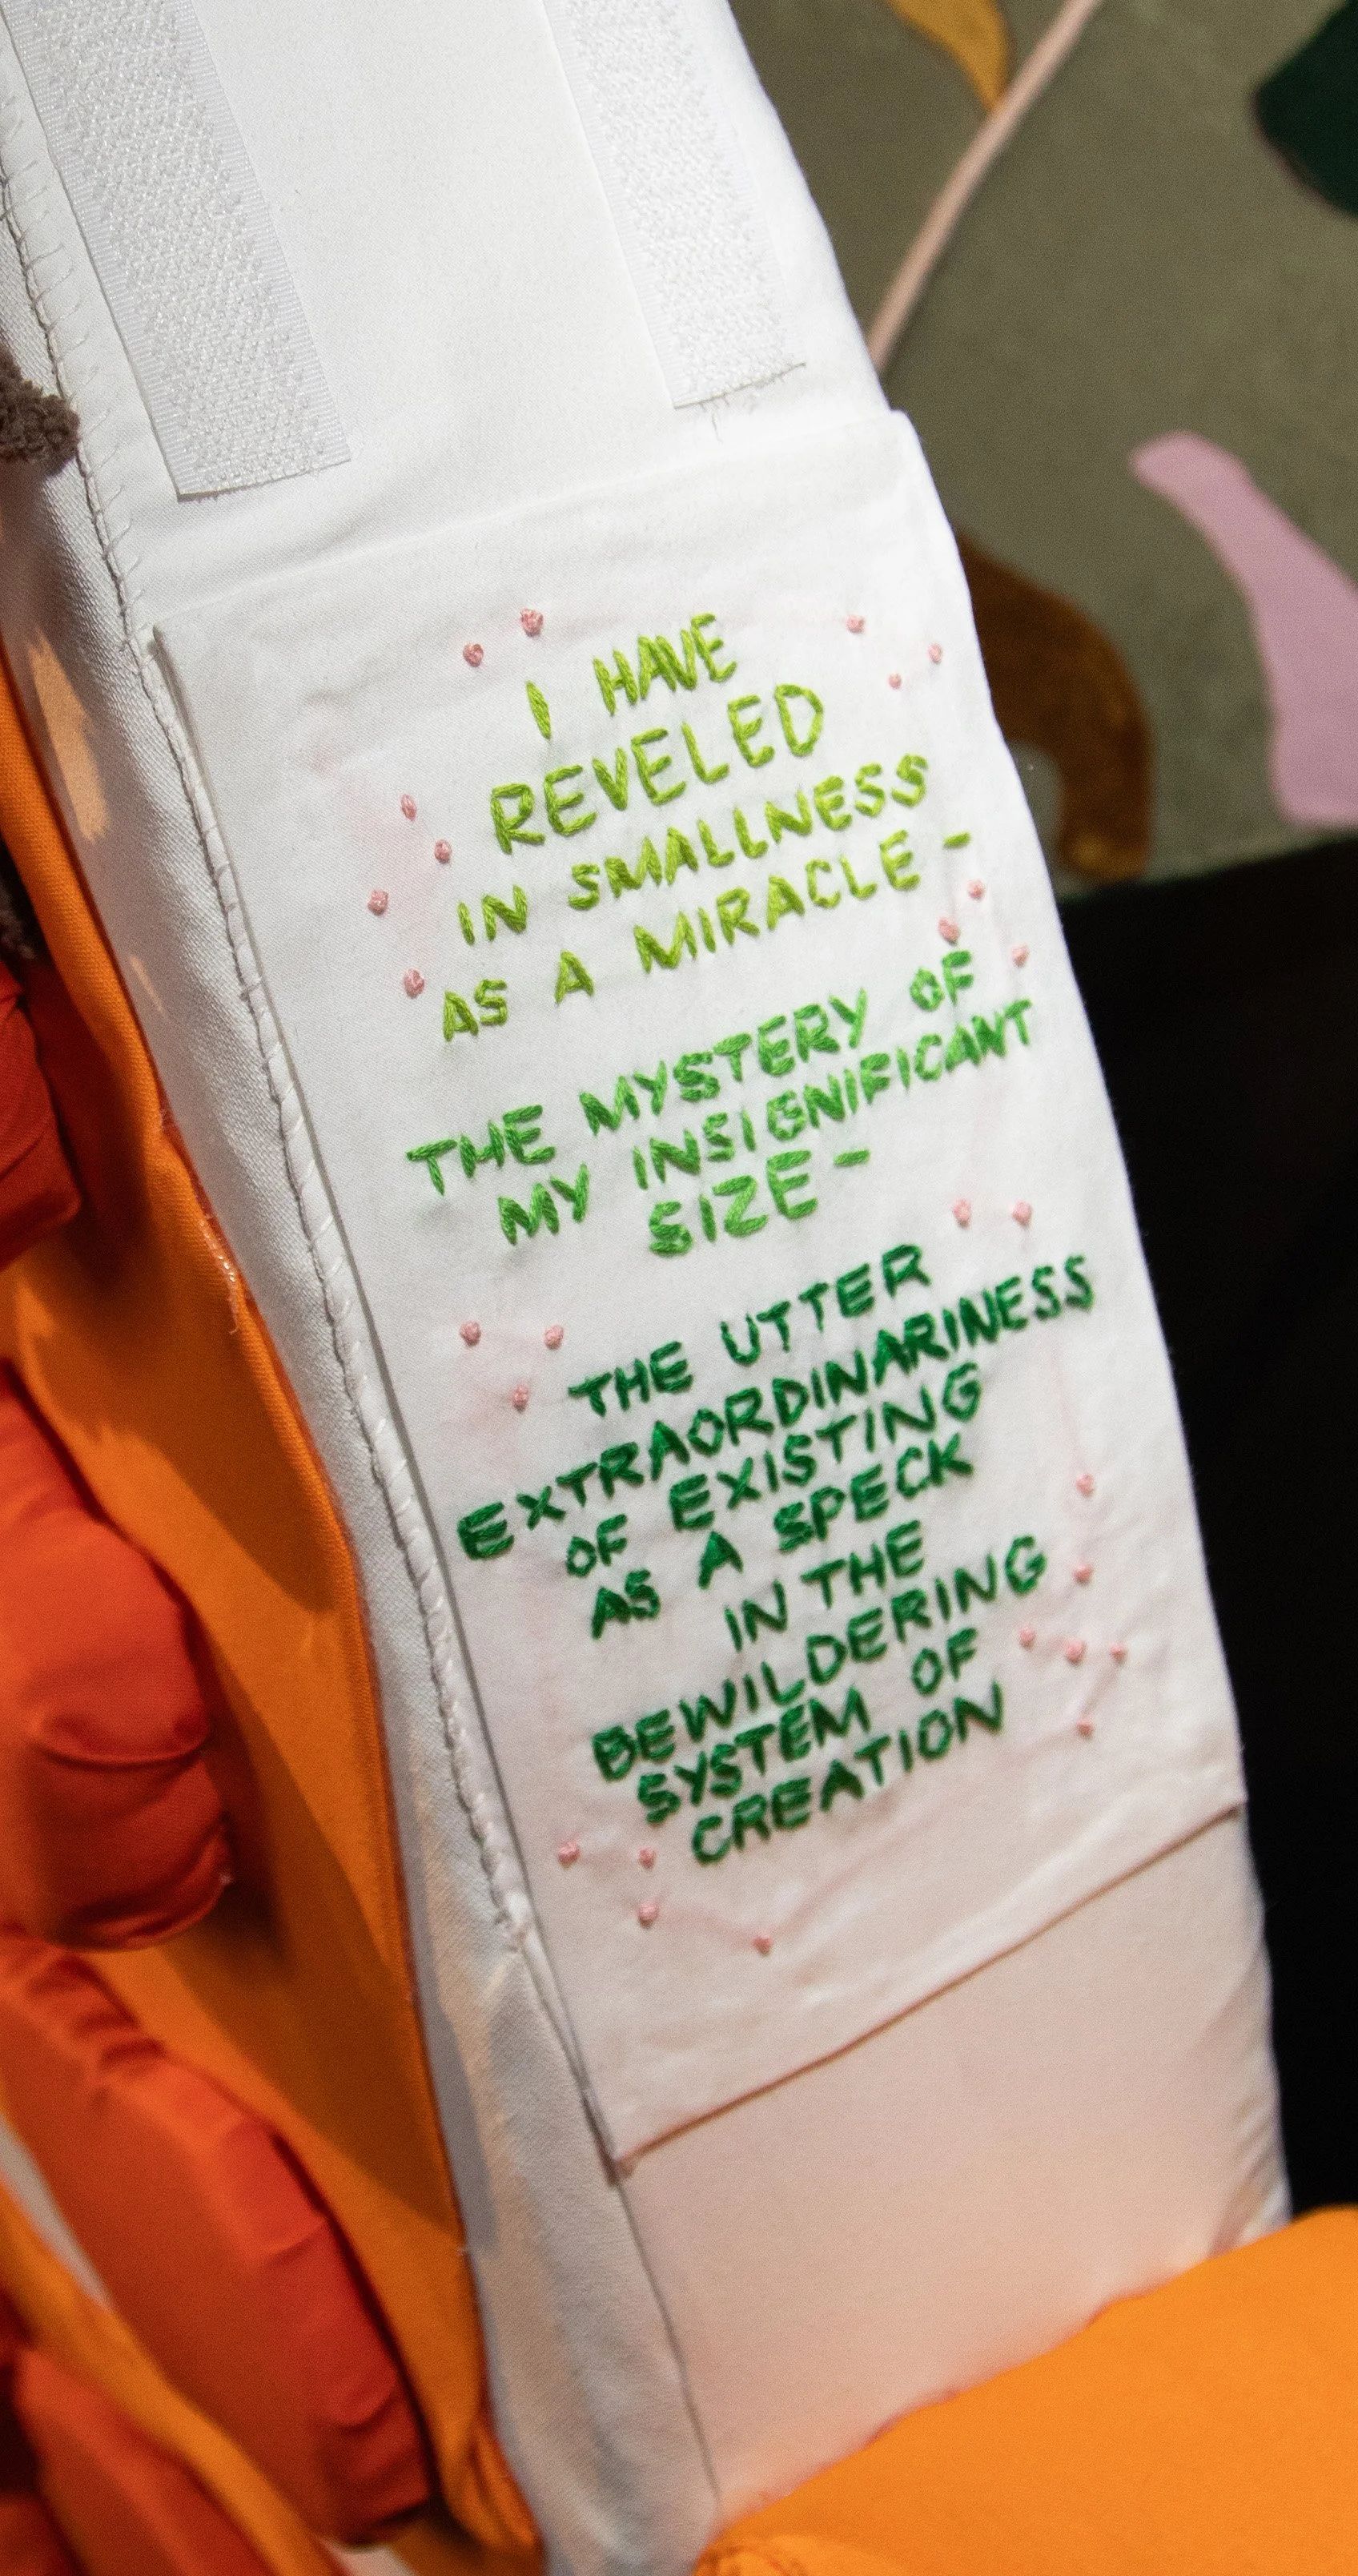 I HAVE
REVELED
IN SMALLNESS
AS A MIRACLE -
THE MYSTERY OF
MY INSIGNIFICANT
SIZE -
THE UTTER
EXTRAORDINARINESS
OF EXISTING
AS A SPECK
IN THE
BEWILDERING
SYSTEM OF
CREATION